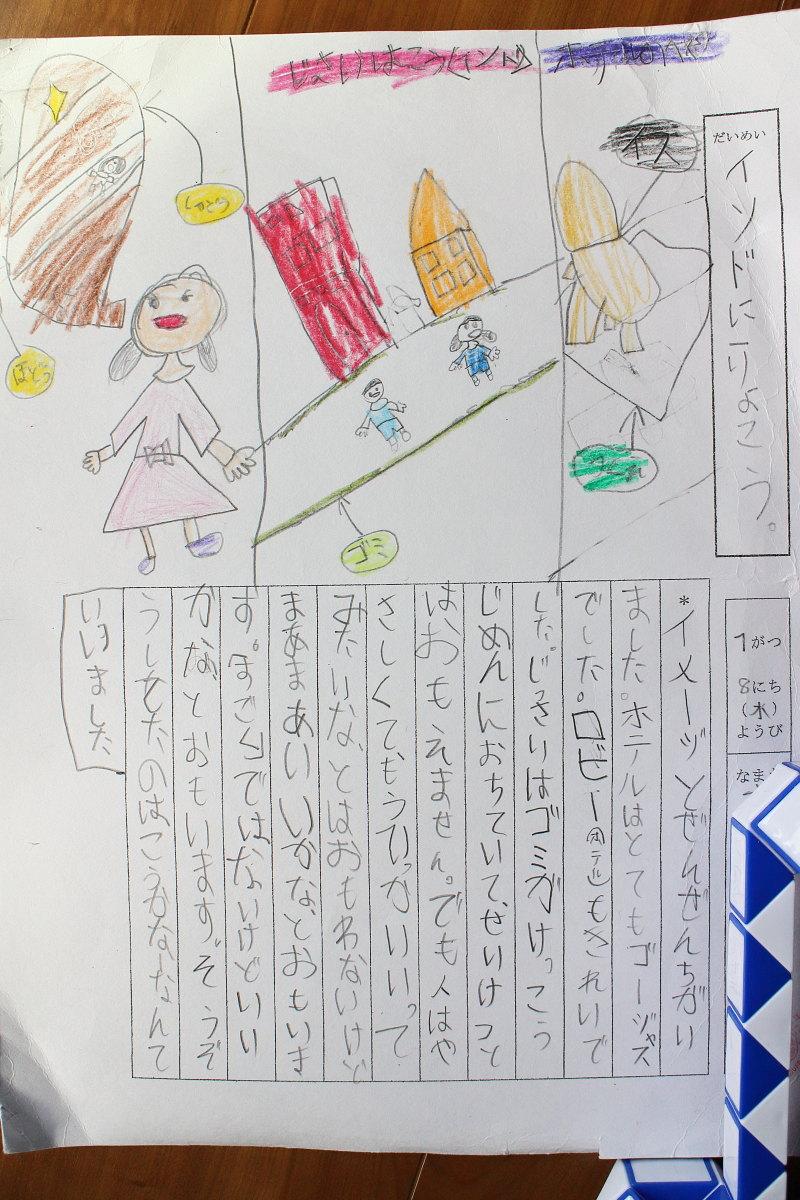 だいめい
インドにりょこう。
1がつ
8にち
(水)
ようび
なま
ホテル
イス
ゴミ
*イメージとぜんぜんちがい
ました。ホテルはとてもゴージャス
でした。ロビー(ホテル)もきれいで
した。じっさいはゴミがけっこう
じめんにおちていて、せいけつと
はおもえません。でも人はや
さしくて、もういっかいいって
みたいな、とはおもわないけど
まあまあいいかな、とおもいま
す。すごくではないけどいい
かなとおもいます。そうぞ
うしてたのはこうかなーなんて
いいました